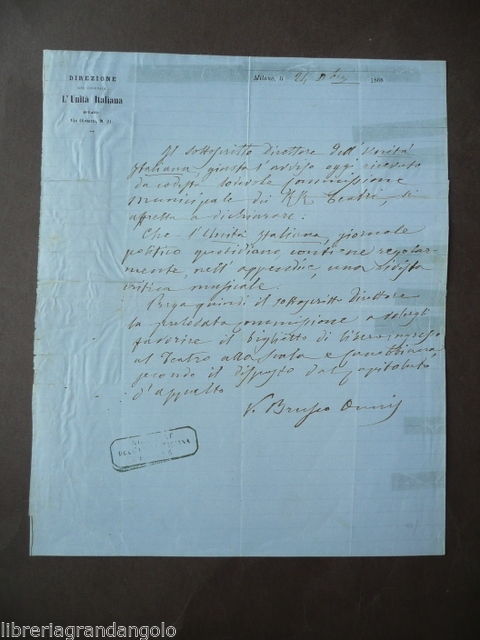 DIREZIONE
L'Unità Italiana
Milano, li 24 1868
Il sottoscritto Direttore dell'Unità
Italiana, giusta l'avviso oggi ricevuto
da codesta Commissione
municipale dei RR Teatri, si
affretta a dichiarare:
Che l'Unità Italiana, giornale
politico quotidiano, contiene regolar-
mente, nell'appendice, una rivista
critica musicale.
Prega quindi il sottoscritto Direttore
la prelodata Commissione a volergli
favorire il biglietto di libero ingresso
al Teatro alla Scala e Canobbiana,
secondo il disposto dal capitolato
d'appalto
V. Brusco Onnis
libreriagrandangolo